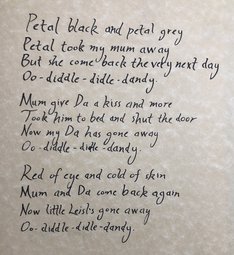 Petal black and petal grey
Petal took my mum away
But she come back the very next day
Oo-diddle-didle-dandy.
Mum give Da a kiss and more
Took him to bed and shut the door
Now my Da has gone away
Oo-diddle-didle-dandy.
Red of eye and cold of skin
Mum and Da come back again
Now little Leisl's gone away
Oo-diddle-didle-dandy.